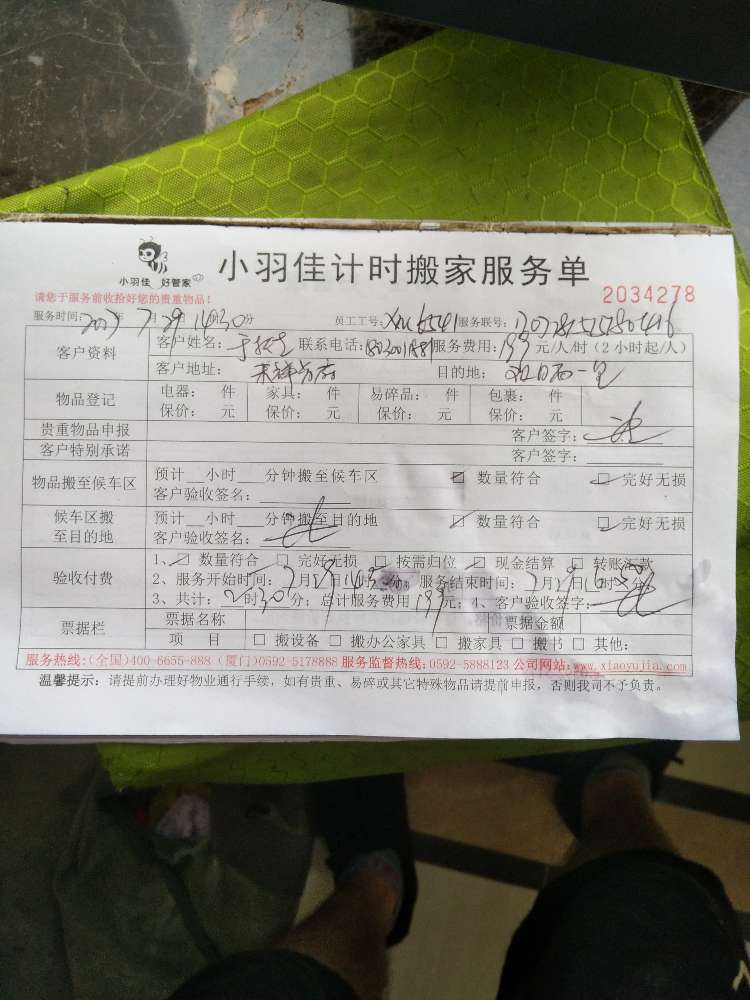 小羽佳 好管家
小羽佳计时搬家服务单
请您于服务前收拾好您的贵重物品！
2034278
服务时间: 年 7月29日14时30分 员工工号: 服务联号:
客户资料
客户姓名: 联系电话: 服务费用: 199元/人/时（2小时起/人）
客户地址: 目的地:
物品登记
电器: 件 家具: 件 易碎品: 件 包裹: 件
保价: 元 保价: 元 保价: 元 保价: 元
贵重物品申报 客户签字:
客户特别承诺 客户签字:
物品搬至候车区
预计__小时__分钟搬至候车区 数量符合 完好无损
客户验收签名:
候车区搬至目的地
预计__小时__分钟搬至目的地 数量符合 完好无损
客户验收签名:
验收付费
1、 数量符合 完好无损 按需归位 现金结算 转账汇款
2、服务开始时间: 7月29日14时 分 服务结束时间: 7月29日 时 分
3、共计: 2时30分; 总计服务费用199元; 4、客户验收签字:
票据栏
票据名称 票据金额
项 目 搬设备 搬办公家具 搬家具 搬书 其他:
服务热线:(全国)400-6655-888 (厦门)0592-5178888 服务监督热线:0592-5888123 公司网站:www.xiaoyujia.com
温馨提示: 请提前办理好物业通行手续，如有贵重、易碎或其它特殊物品请提前申报，否则我司不予负责。